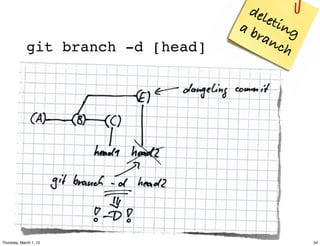 deleting
a branch
git branch -d [head]
(E)
dangeling commit
(A) (B) (C)
head1 head2
git branch -d head2
! -D !
Thursday, March 1, 12
34